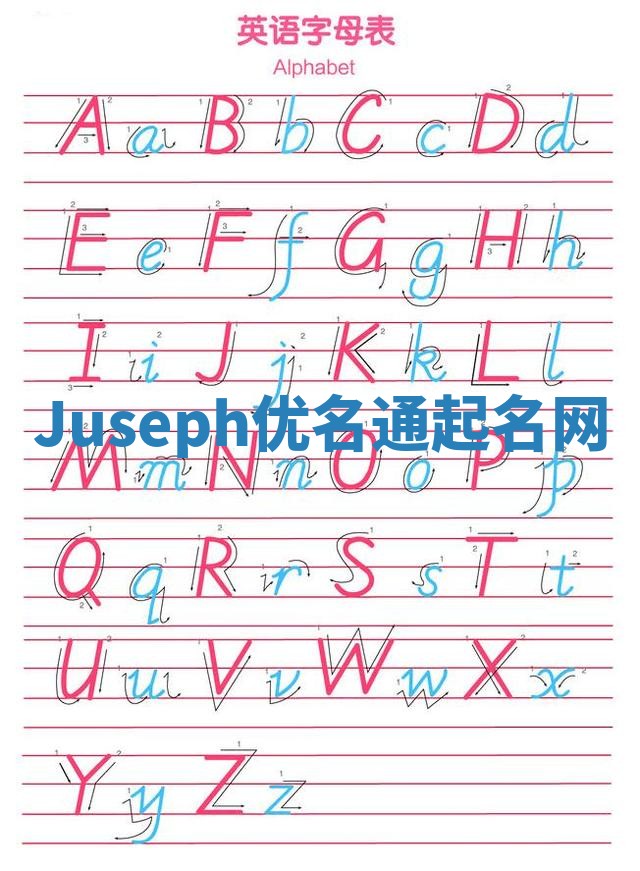 英语字母表
Alphabet
A a B b C c D d
E e F f G g H h
I i J j K k L l
Juseph优名通起名网
M m N n O o P p
Q q R r S s T t
U u V v W w X x
Y y Z z